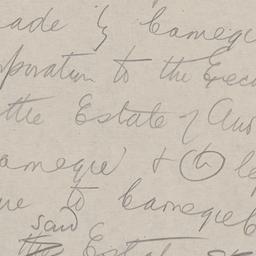 ade by Carnegi
rporation to the Exec
the Estate of And
arnegie & (th) le
ue to Carnegie C
said
the Estate